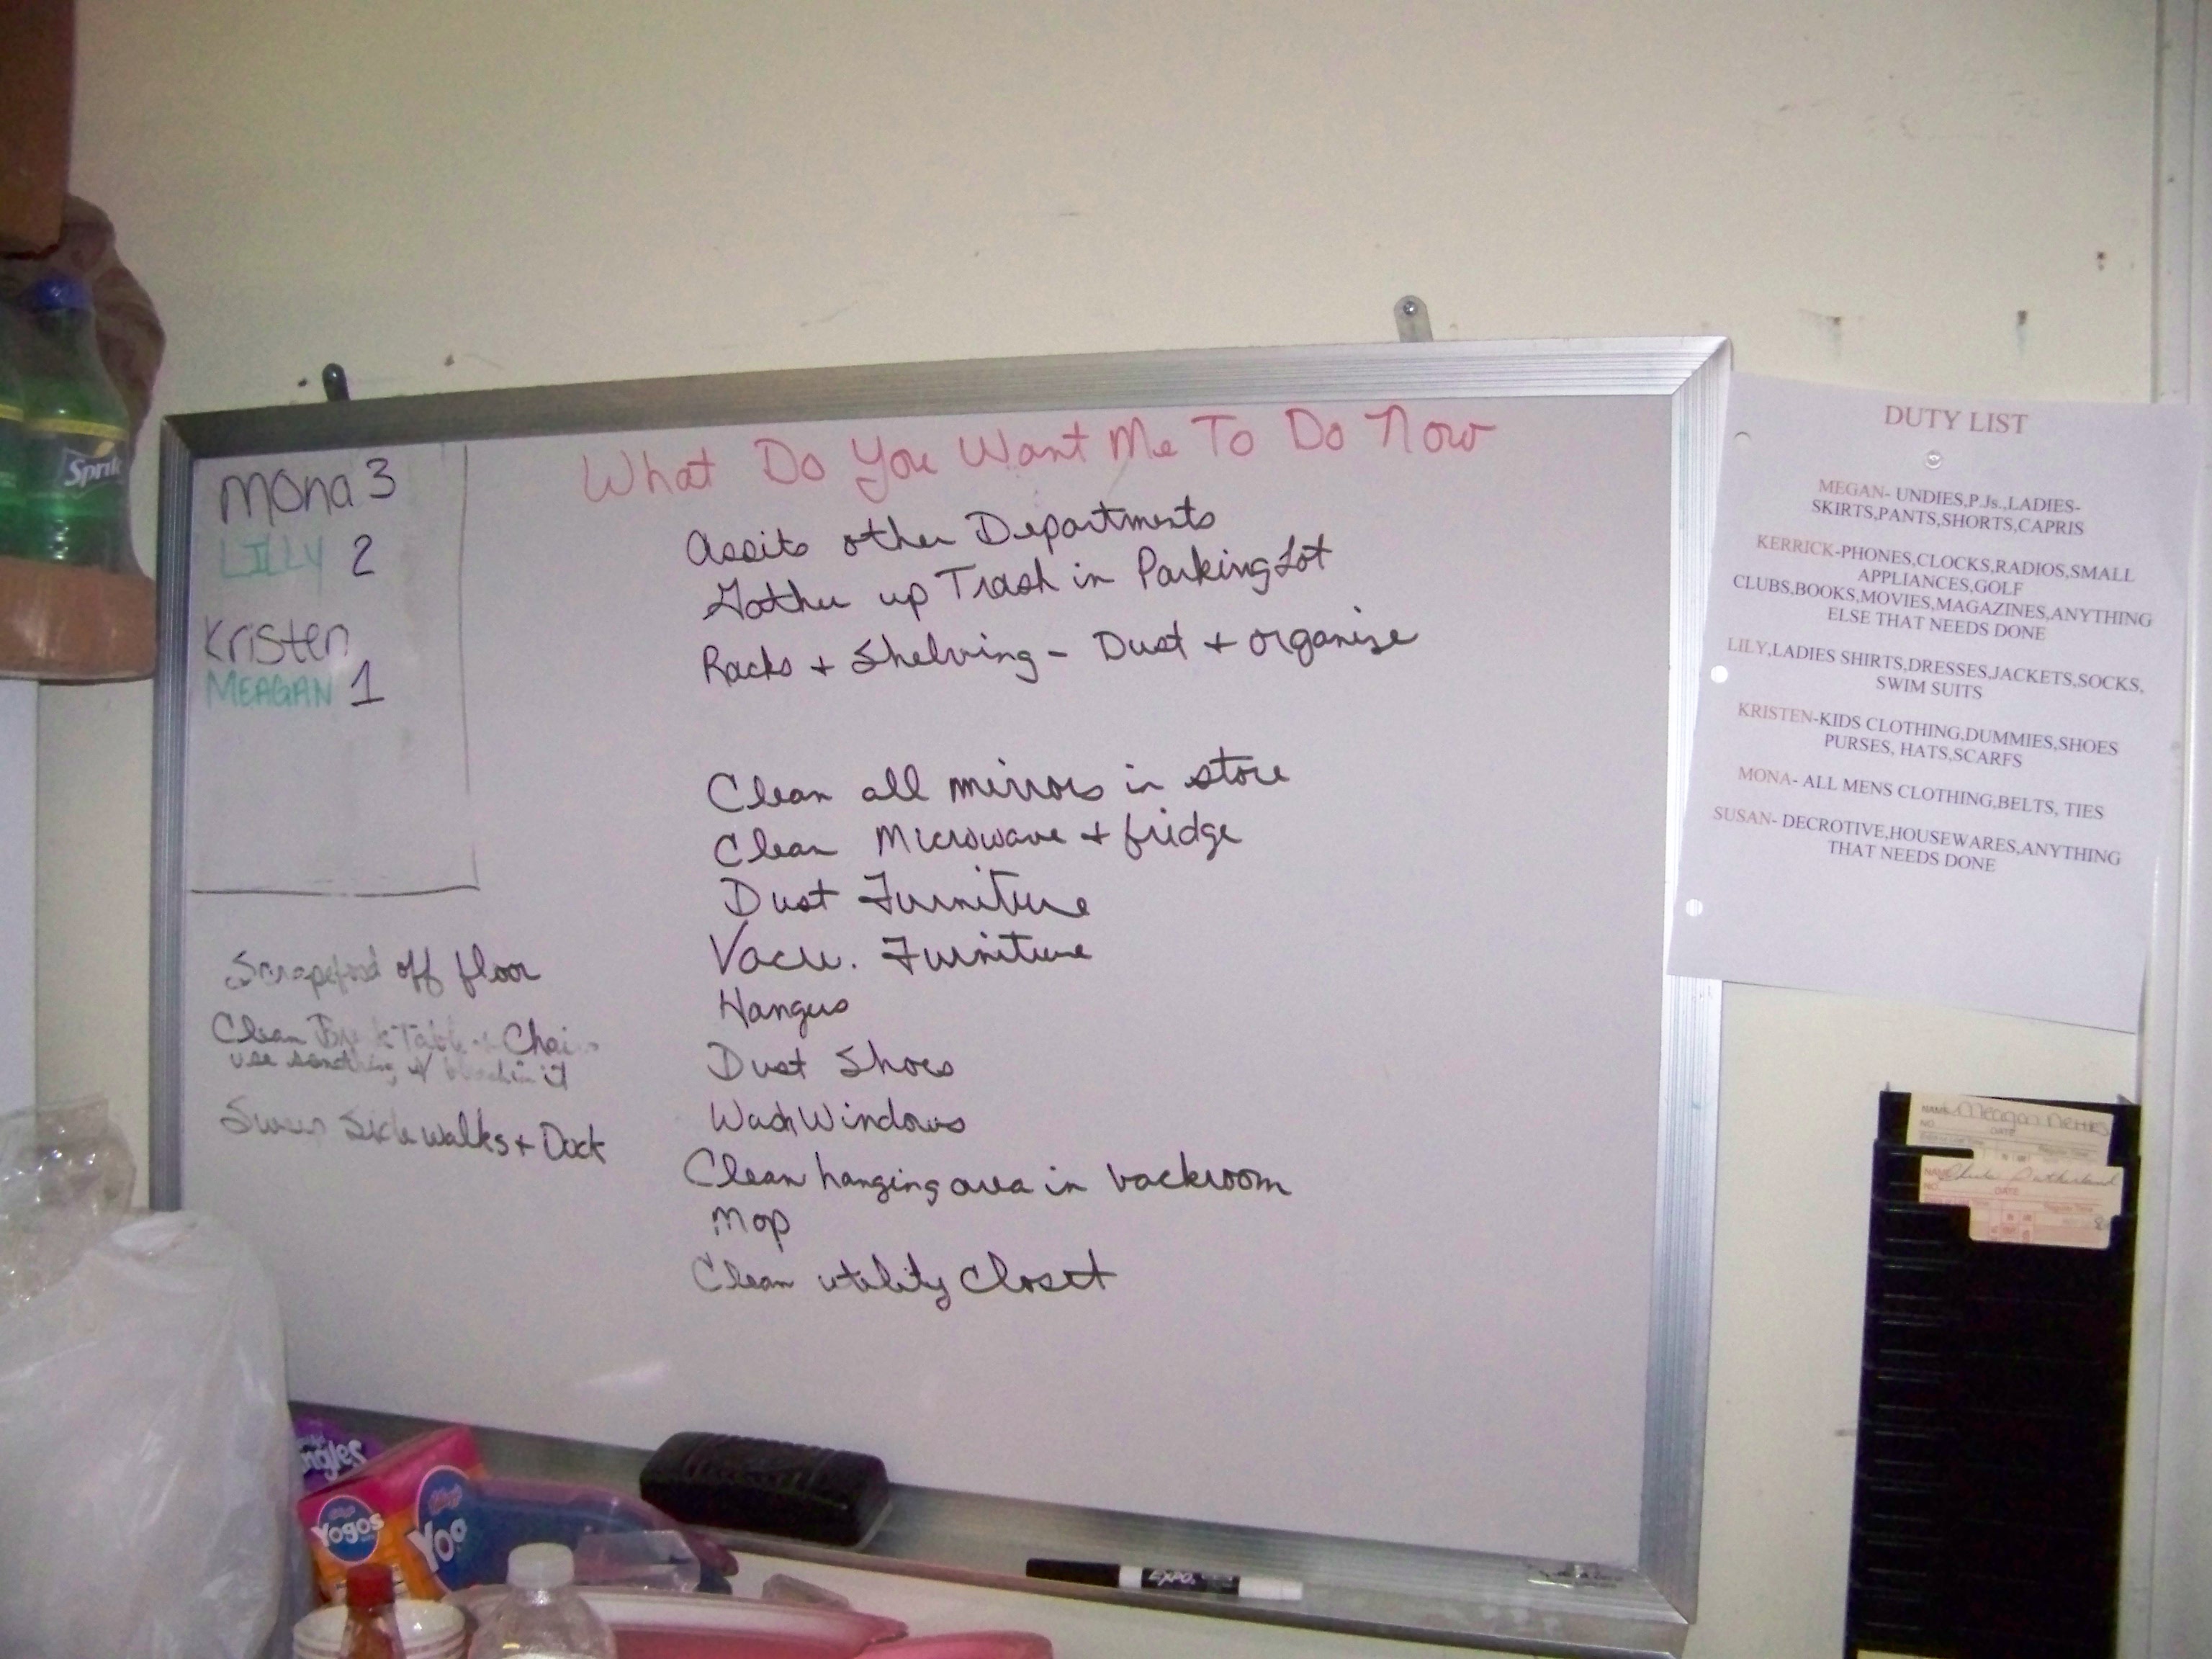 What Do You Want Me To Do Now
Mona 3
LILLY 2
Kristen
MEAGAN 1
Assits other Departments
Gather up Trash in Parking Lot
Racks + Shelving - Dust + organize
Clean all mirrors in store
Clean Microwave + fridge
Dust Furniture
Vacu. Furniture
Hangers
Dust Shoes
Wash Windows
Clean hanging area in backroom
Mop
Clean utility Closet
Scrape food off floor
Clean Table Chai
use something w/ it
Side walks + Dock
DUTY LIST
MEGAN- UNDIES,P.Js.,LADIES-
SKIRTS,PANTS,SHORTS,CAPRIS
KERRICK-PHONES,CLOCKS,RADIOS,SMALL
APPLIANCES,GOLF
CLUBS,BOOKS,MOVIES,MAGAZINES,ANYTHING
ELSE THAT NEEDS DONE
LILY,LADIES SHIRTS,DRESSES,JACKETS,SOCKS,
SWIM SUITS
KRISTEN-KIDS CLOTHING,DUMMIES,SHOES
PURSES, HATS,SCARFS
MONA- ALL MENS CLOTHING,BELTS, TIES
SUSAN- DECROTIVE,HOUSEWARES,ANYTHING
THAT NEEDS DONE
NAME Meagan
NO. DATE
NAME
NO. DATE
Sprite
Yogos
Yog
EXPO